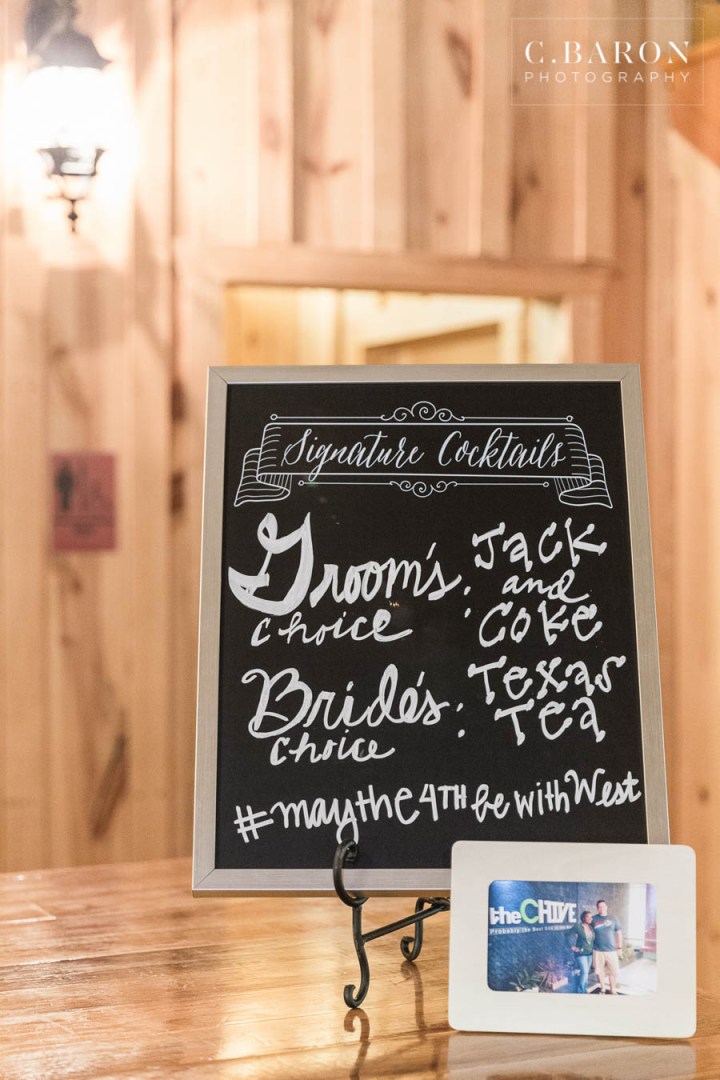 C.BARON
PHOTOGRAPHY
Signature Cocktails
Groom's choice : Jack and Coke
Bride's choice : Texas Tea
#maythe4THbewithWest
theCHIVE
Probably the Best Site